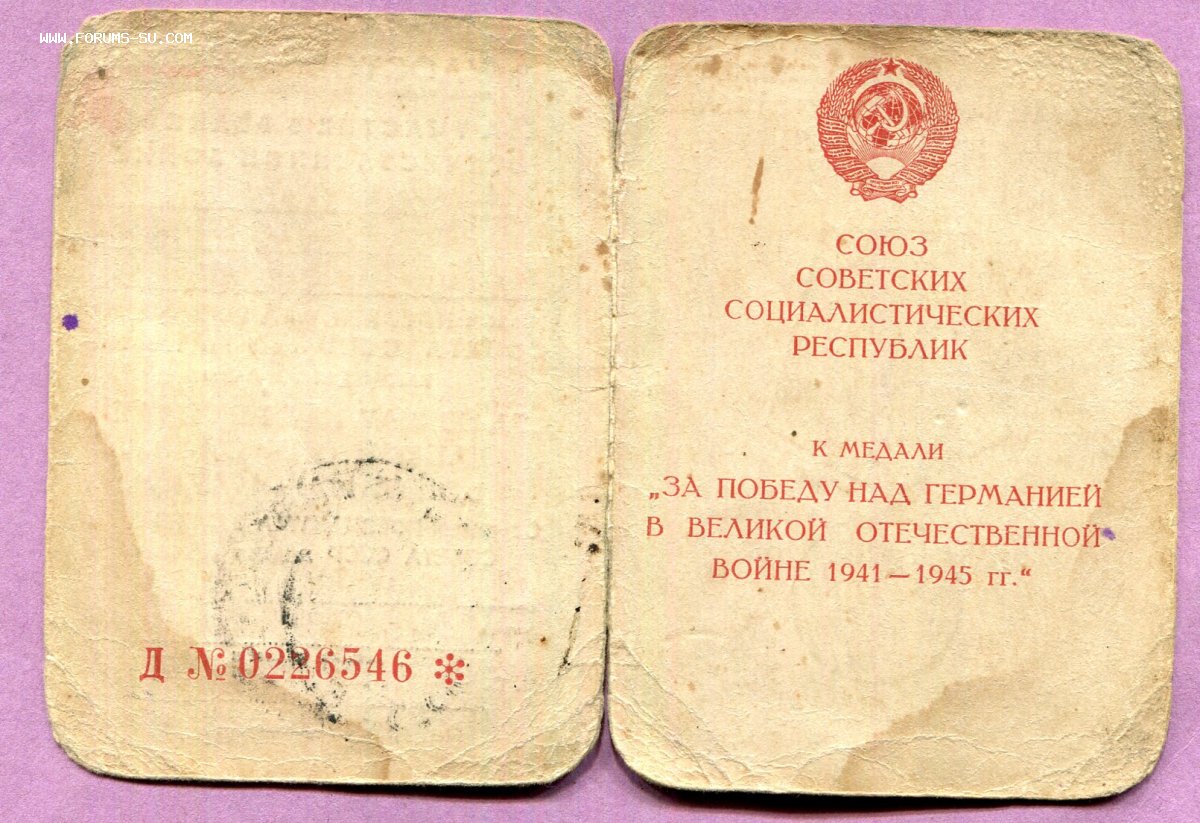 WWW.FORUMS-SU.COM
Д № 0226546 *
СОЮЗ
СОВЕТСКИХ
СОЦИАЛИСТИЧЕСКИХ
РЕСПУБЛИК
К МЕДАЛИ
„ЗА ПОБЕДУ НАД ГЕРМАНИЕЙ
В ВЕЛИКОЙ ОТЕЧЕСТВЕННОЙ
ВОЙНЕ 1941—1945 гг.“